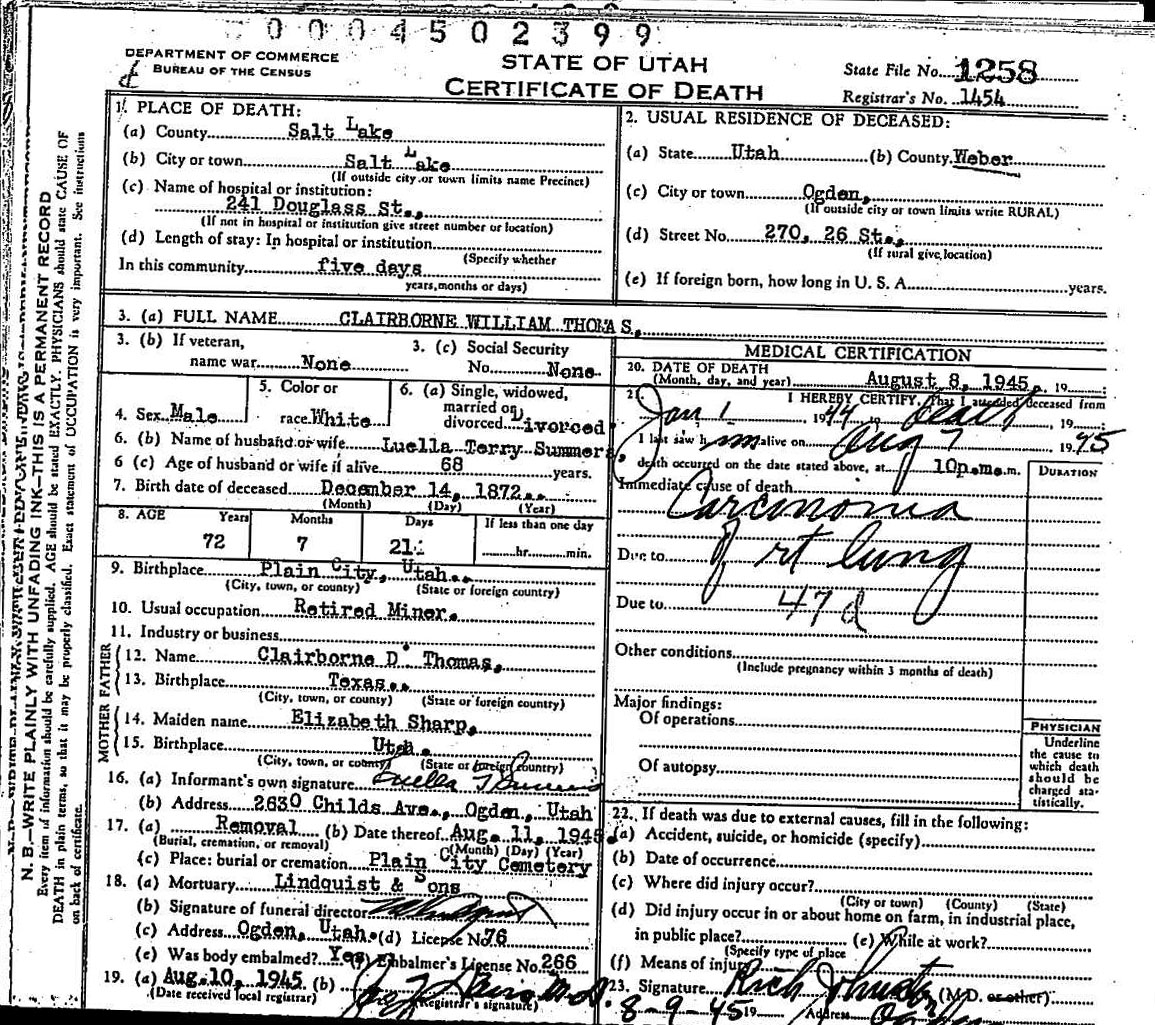 0004502399
DEPARTMENT OF COMMERCE
BUREAU OF THE CENSUS
STATE OF UTAH
CERTIFICATE OF DEATH
State File No. 1258
Registrar's No. 1454
1. PLACE OF DEATH:
(a) County Salt Lake
(b) City or town Salt Lake
(If outside city or town limits name Precinct)
(c) Name of hospital or institution:
241 Douglass St.,
(If not in hospital or institution give street number or location)
(d) Length of stay: In hospital or institution
(Specify whether
In this community five days
years, months or days)
2. USUAL RESIDENCE OF DECEASED:
(a) State Utah (b) County Weber
(c) City or town Ogden,
(If outside city or town limits write RURAL)
(d) Street No. 270, 26 St.,
(If rural give location)
(e) If foreign born, how long in U. S. A. years.
3. (a) FULL NAME CLAIRBORNE WILLIAM THOMAS,
3. (b) If veteran,
name war None
3. (c) Social Security
No. None
4. Sex Male
5. Color or
race White
6. (a) Single, widowed,
married or
divorced Divorced
6. (b) Name of husband or wife Luella Terry Summers,
6 (c) Age of husband or wife if alive 68 years.
7. Birth date of deceased December 14, 1872..
(Month) (Day) (Year)
8. AGE Years Months Days If less than one day
72 7 21 hr. min.
9. Birthplace Plain City, Utah..
(City, town, or county) (State or foreign country)
10. Usual occupation Retired Miner.
11. Industry or business
FATHER
12. Name Clairborne D Thomas,
13. Birthplace Texas..
(City, town, or county) (State or foreign country)
MOTHER
14. Maiden name Elizabeth Sharp,
15. Birthplace Utah.
(City, town, or county) (State or foreign country)
16. (a) Informant's own signature Luella T Summers
(b) Address 2630 Childs Ave., Ogden, Utah
17. (a) Removal (b) Date thereof Aug. 11, 1945.
(Burial, cremation, or removal) (Month) (Day) (Year)
(c) Place: burial or cremation Plain City Cemetery
18. (a) Mortuary Lindquist & Sons
(b) Signature of funeral director
(c) Address Ogden, Utah. (d) License No. 76
(e) Was body embalmed? Yes (f) Embalmer's License No. 266
19. (a) Aug. 10, 1945 (b) M.D.
(Date received local registrar) (Registrar's signature)
MEDICAL CERTIFICATION
20. DATE OF DEATH
(Month, day, and year) August 8, 1945. 19
21. I HEREBY CERTIFY, That I attended deceased from
Jan 1 1944 to death, 19
I last saw him alive on Aug 7 1945
death occurred on the date stated above, at 10p.m. m.
DURATION
Immediate cause of death
Carcinoma
Due to of rt lung
Due to 47d
Other conditions
(Include pregnancy within 3 months of death)
Major findings:
Of operations
Of autopsy
PHYSICIAN
Underline
the cause to
which death
should be
charged sta-
tistically.
22. If death was due to external causes, fill in the following:
(a) Accident, suicide, or homicide (specify)
(b) Date of occurrence
(c) Where did injury occur?
(City or town) (County) (State)
(d) Did injury occur in or about home on farm, in industrial place,
in public place? (e) While at work?
(Specify type of place
(f) Means of injury
23. Signature Rich Johnston (M.D. or other)
8-9-45 19 Address Ogden
N. B.—WRITE PLAINLY WITH UNFADING INK—THIS IS A PERMANENT RECORD
Every item of information should be carefully supplied. AGE should be stated EXACTLY. PHYSICIANS should state CAUSE OF
DEATH in plain terms, so that it may be properly classified. Exact statement of OCCUPATION is very important. See instructions
on back of certificate.